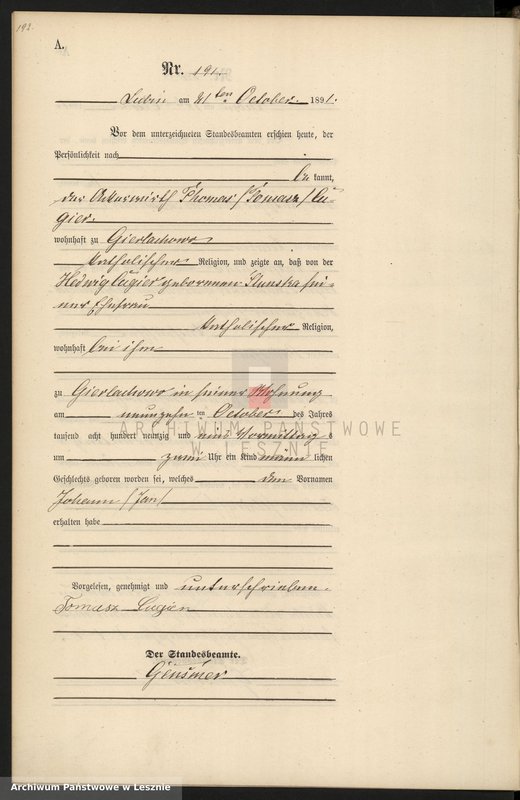 192.
A.
Nr. 191.
Lubin am 21 ten October 1891.
Vor dem unterzeichneten Standesbeamten erschien heute, der
Persönlichkeit nach
be kannt,
der Ackerwirth Thomas (Tomasz) Lu-
gier
wohnhaft zu Gierlachowo
katholischer Religion, und zeigte an, daß von der
Hedwig Lugier geborenen sei-
ner Ehefrau
katholischer Religion,
wohnhaft bei ihm
zu Gierlachowo in seiner Wohnung
am neunzehn ten October des Jahres
tausend acht hundert neunzig und eins Vormittag s
um zwei Uhr ein Kind männ lichen
Geschlechts geboren worden sei, welches den Vornamen
Johann (Jan)
erhalten habe
Vorgelesen, genehmigt und unterschrieben.
Tomasz
Der Standesbeamte.
ARCHIWUM PAŃSTWOWE
W LESZNIE
Archiwum Państwowe w Lesznie